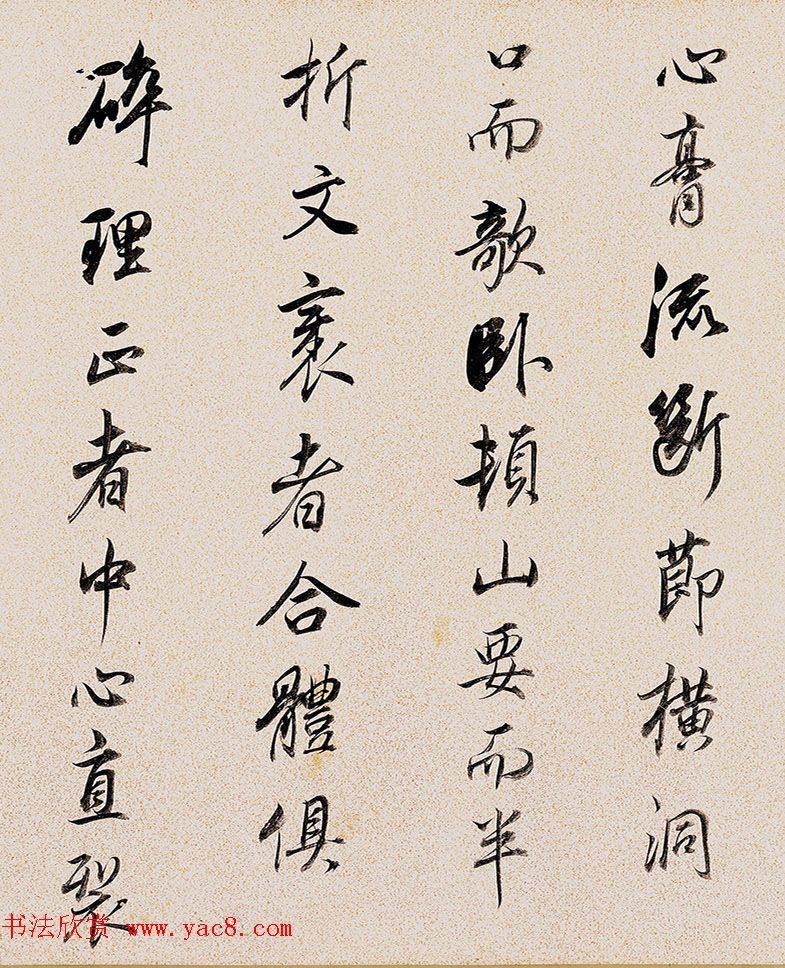 心膏流斷節橫洞
口而欹卧頓山要而半
折文衺者合體俱
碎理正者中心直裂
书法欣赏 www.yac8.com